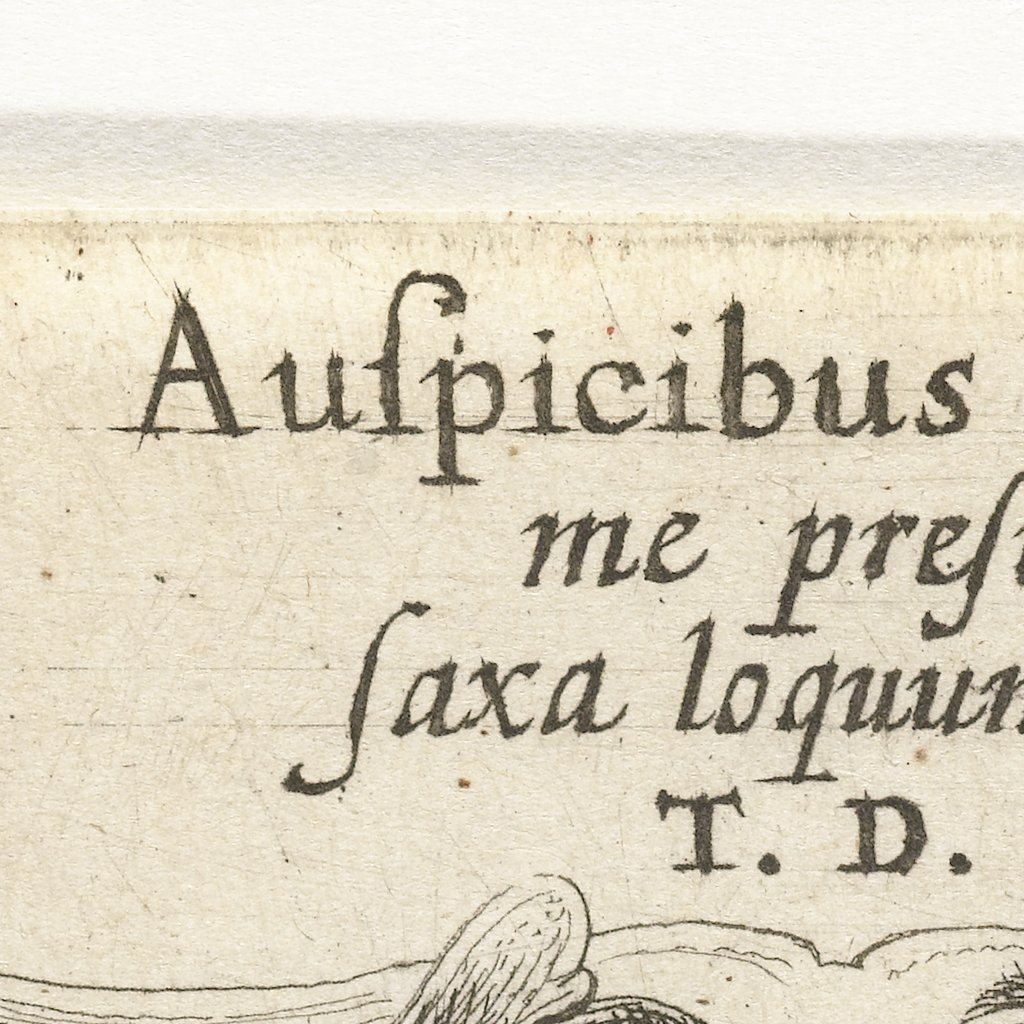 Auſpicibus
me preſ
ſaxa loquun
T. D.